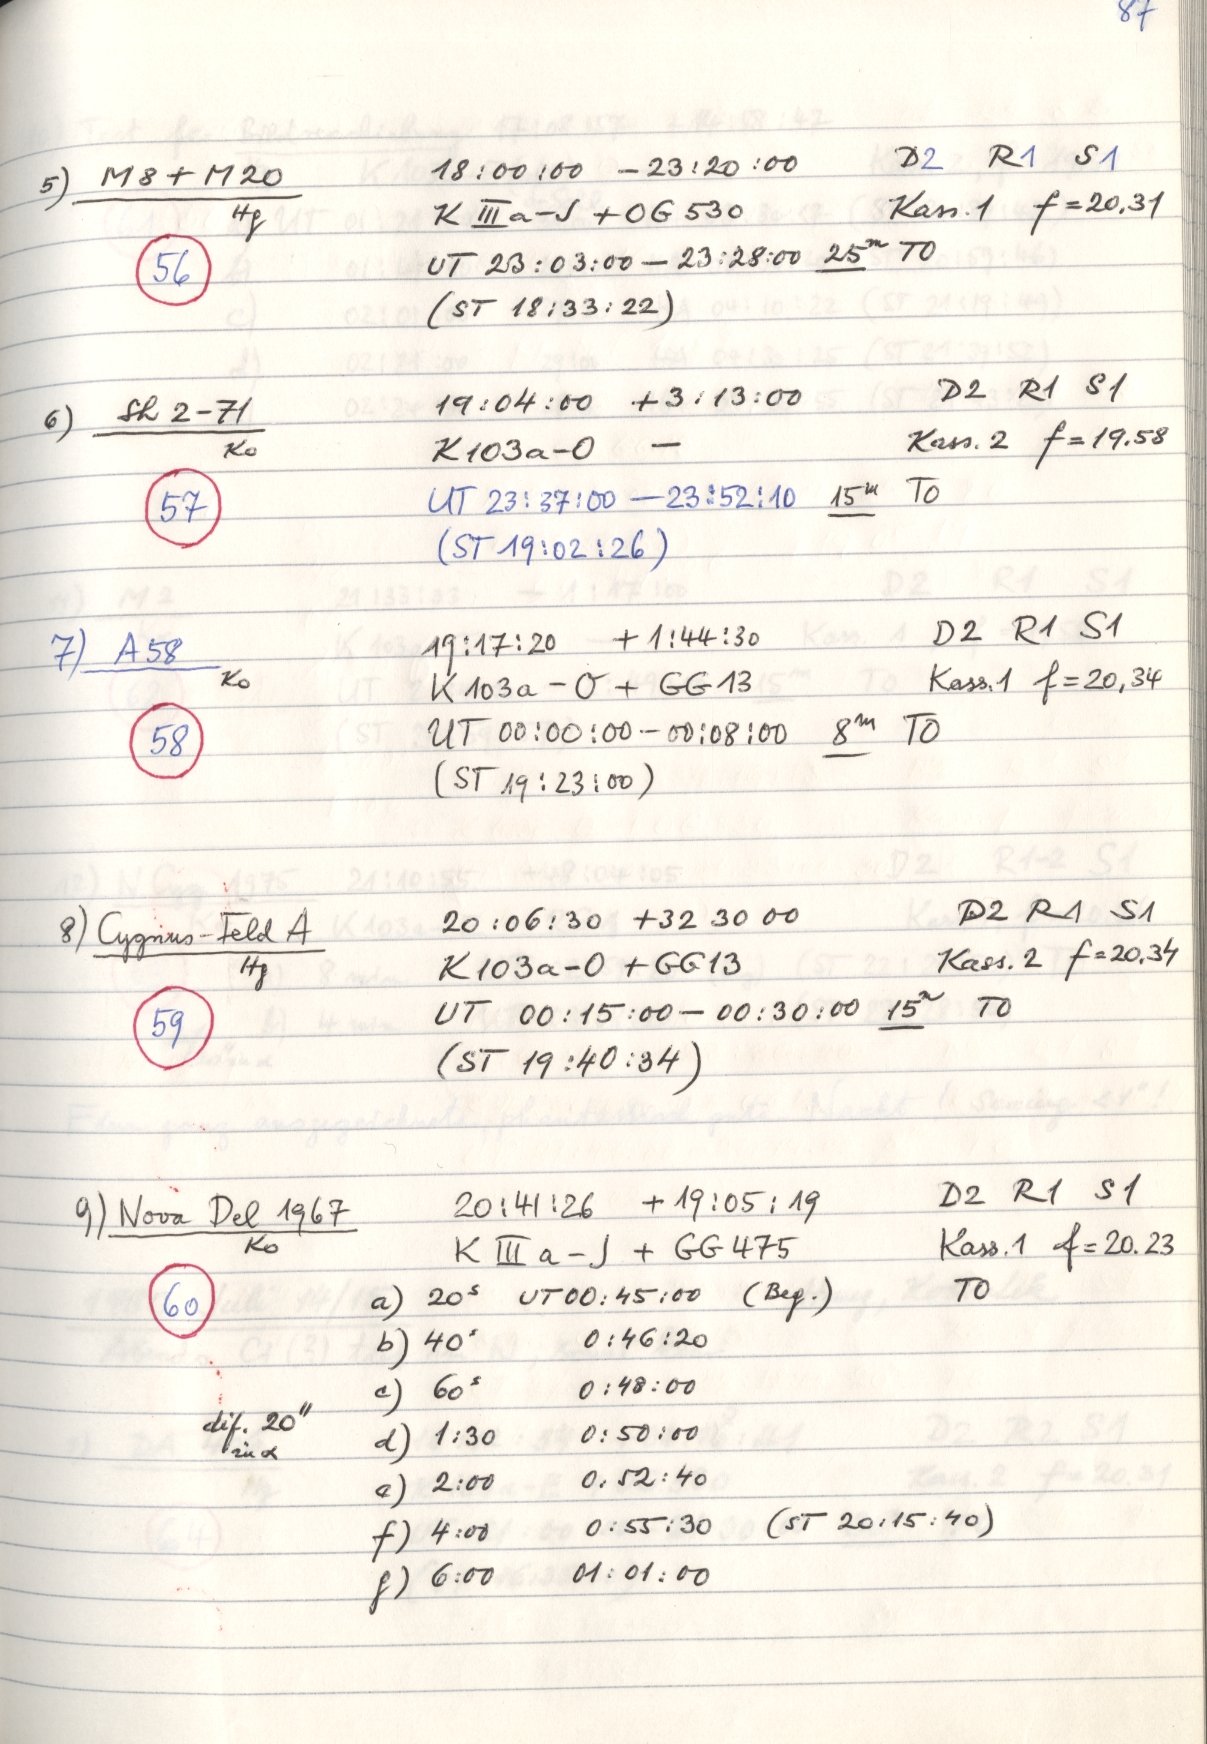 87
5) M8 + M20 18:00:00 –23:20:00 D2 R1 S1
Hg K IIIa–J + OG 530 Kass. 1 f = 20,31
56 UT 23:03:00 – 23:28:00 25m TO
(ST 18:33:22)
6) Sh 2–71 19:04:00 +3:13:00 D2 R1 S1
Ko K103a–O – Kass. 2 f = 19.58
57 UT 23:37:00 – 23:52:10 15m TO
(ST 19:02:26)
7) A58 19:17:20 +1:44:30 D2 R1 S1
Ko K103a–O + GG13 Kass. 1 f = 20,34
58 UT 00:00:00 – 00:08:00 8m TO
(ST 19:23:00)
8) Cygnus–Feld A 20:06:30 +32 30 00 D2 R1 S1
Hg K103a–O + GG13 Kass. 2 f = 20.34
59 UT 00:15:00 – 00:30:00 15m TO
(ST 19:40:34)
9) Nova Del 1967 20:41:26 +19:05:19 D2 R1 S1
Ko K IIIa–J + GG475 Kass. 1 f = 20.23
60 a) 20s UT 00:45:00 (Beg.) TO
b) 40s 0:46:20
c) 60s 0:48:00
dif. 20" d) 1:30 0:50:00
in α e) 2:00 0:52:40
f) 4:00 0:55:30 (ST 20:15:40)
g) 6:00 01:01:00